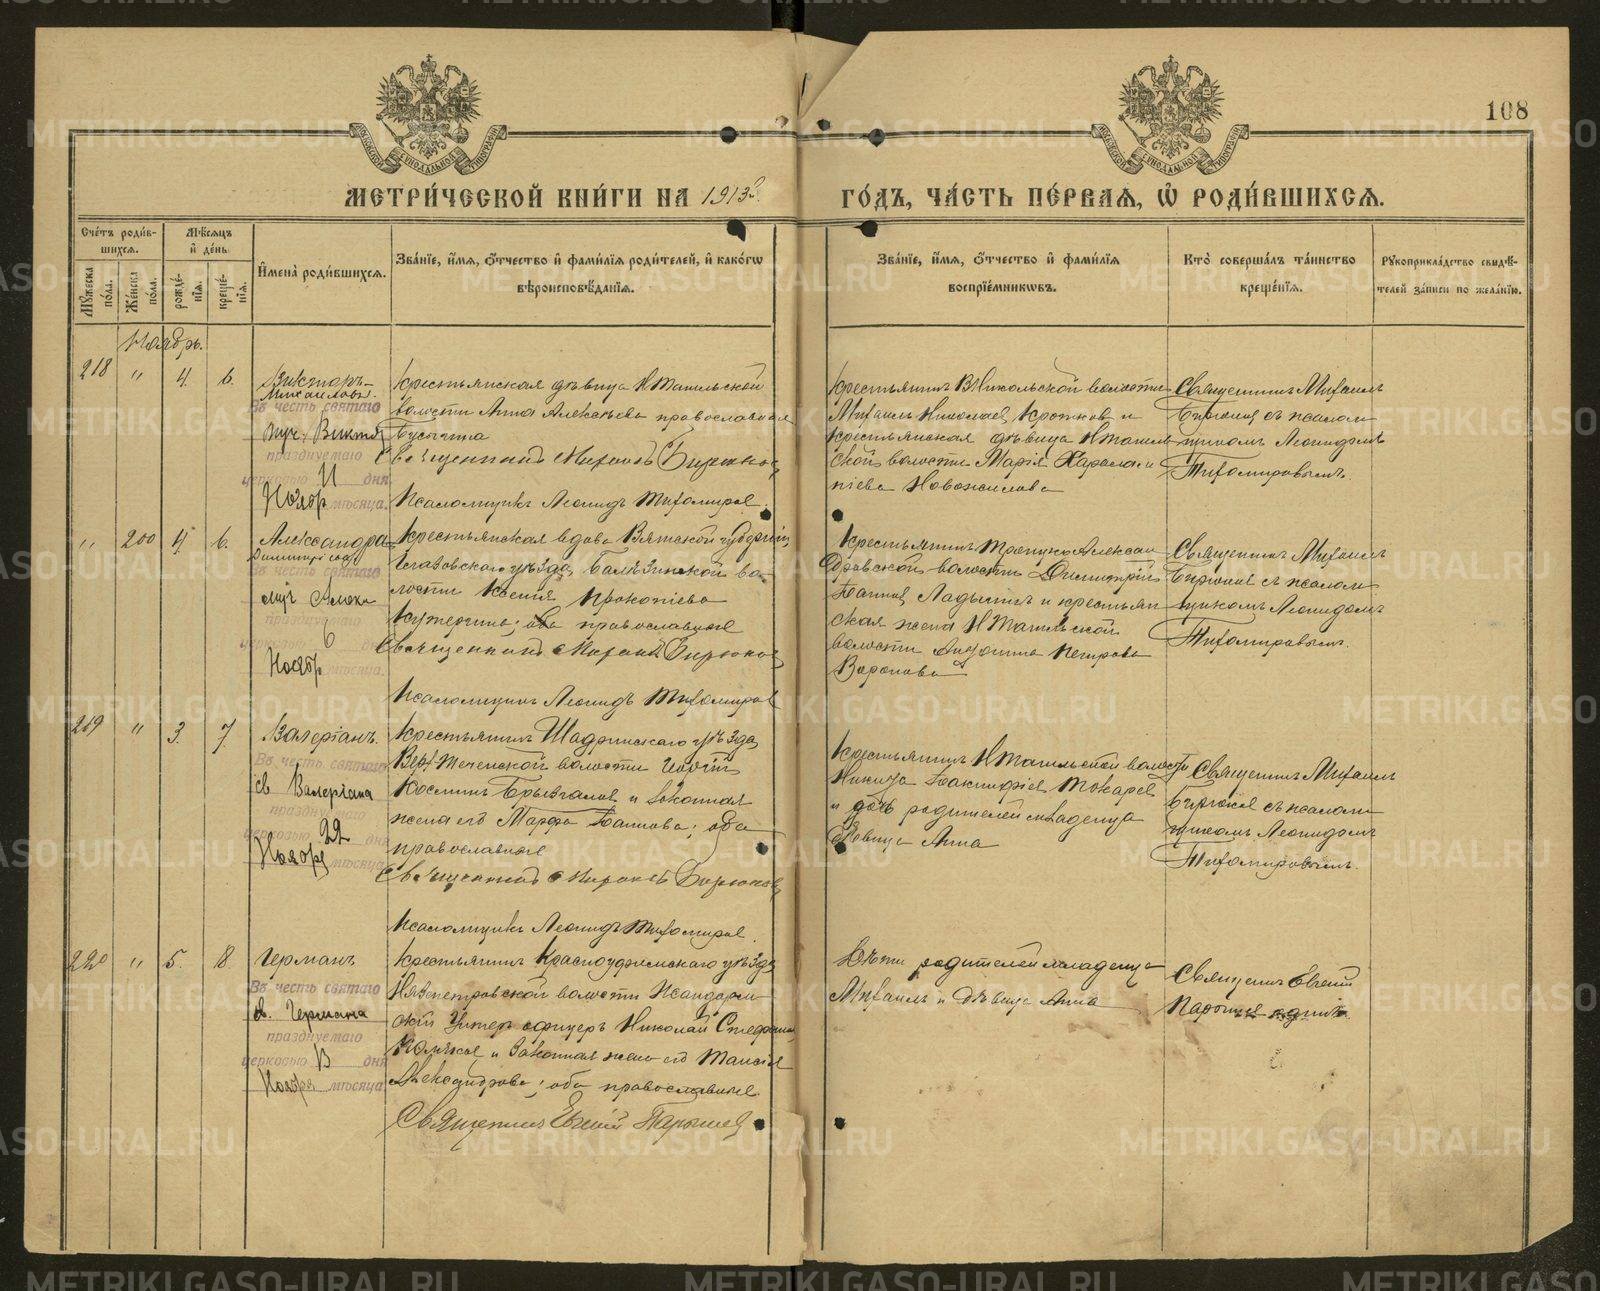 108
МЕТРИ́ЧЕСКОЙ КНИ́ГИ НА 1913й
ГО́ДЪ, ЧА́СТЬ ПЕ́РВАѦ, Ѡ РОДИ́ВШИХСѦ.
Сче́тъ роди́в-
шихсѧ.
Мѣ́сѧцъ
и҆ де́нь
Мꙋ́жеска по́ла.
Же́нска по́ла.
рожде́-
нїѧ.
креще́-
нїѧ.
И҆мена̀ роди́вшихсѧ.
Зва́нїе, и҆́мѧ, ѻ҆́тчество и҆ фами́лїѧ роди́телей, и҆ како́гѡ
вѣроисповѣ́данїѧ.
Зва́нїе, и҆́мѧ, ѻ҆́тчество и҆ фами́лїѧ
воспрїе́мникѡвъ.
Кто̀ соверша́лъ та́инство
креще́нїѧ.
Рꙋкоприкла́дство свидѣ́-
телей за́писи по жела́нїю.
Ноябрь.
218 " 4. 6.
Викторъ-
Михаиловъ.
Въ честь святаго
муч. Викт
празднуемаго
церковью 11 дня
Ноябр мѣсяца.
Крестьянская дѣвица Н Тагильской
волости Анна Алексѣева православная
Священникъ Михаилъ Бирюковъ
Псаломщикъ Леонидъ Тихомировъ.
Крестьянинъ ВНикольской волости
Михаилъ Николаевъ и
Крестьянская дѣвица НТагиль
ской волости Марія Харалам
піева Новожилова
Священникъ Михаилъ
Бирюковъ съ псалом
щикомъ Леонидомъ
Тихомировымъ.
" 200 4. 6.
Александра
Димитріева
Въ честь святаго
муч Алекс
празднуемаго
церковью 6 дня
Ноябр мѣсяца.
Крестьянская вдова Вятской губерніи,
Глазовскаго уѣзда, Балезинской во-
лости Ксенія Прокопіева
православные
Священникъ Михаилъ Бирюковъ
Псаломщикъ Леонидъ Тихомировъ
Крестьянинъ Алексан
дровской волости Димитрій
Іоанновъ Ладыгинъ и крестьян
ская жена НТагильской
волости Петрова
Воронова
Священникъ Михаилъ
Бирюковъ съ псалом
щикомъ Леонидомъ
Тихомировымъ.
219 " 3. 7.
Валеріанъ.
Въ честь святаго
св Валеріана
празднуемаго
церковью 22 дня
Ноябр мѣсяца
Крестьянинъ Шадринскаго уѣзда,
Верх-Теченской волости Георгій
Косминъ Брызгаловъ и законная
жена его Марфа Іоаннова; оба
православные
Священникъ Михаилъ Бирюковъ
Псаломщикъ Леонидъ Тихомировъ.
Крестьянинъ НТагильской волости
Никита Токаревъ
и дочь родителей младенца
дѣвица Анна
Священникъ Михаилъ
Бирюковъ съ псалом
щикомъ Леонидомъ
Тихомировымъ.
220 " 5. 8
Германъ
Въ честь святаго
св. Германа
празднуемаго
церковью 13 дня
Ноября мѣсяца
Крестьянинъ Красноуфимскаго уѣзда
Нязепетровской волости
Унтеръ офицеръ Николай
и законная жена его Таисія
Александрова; оба православные.
Священникъ Евгеній
Дѣти родителей младенца
Михаилъ и дѣвица Анна
Священникъ Евгеній
METRIKI.GASO-URAL.RU